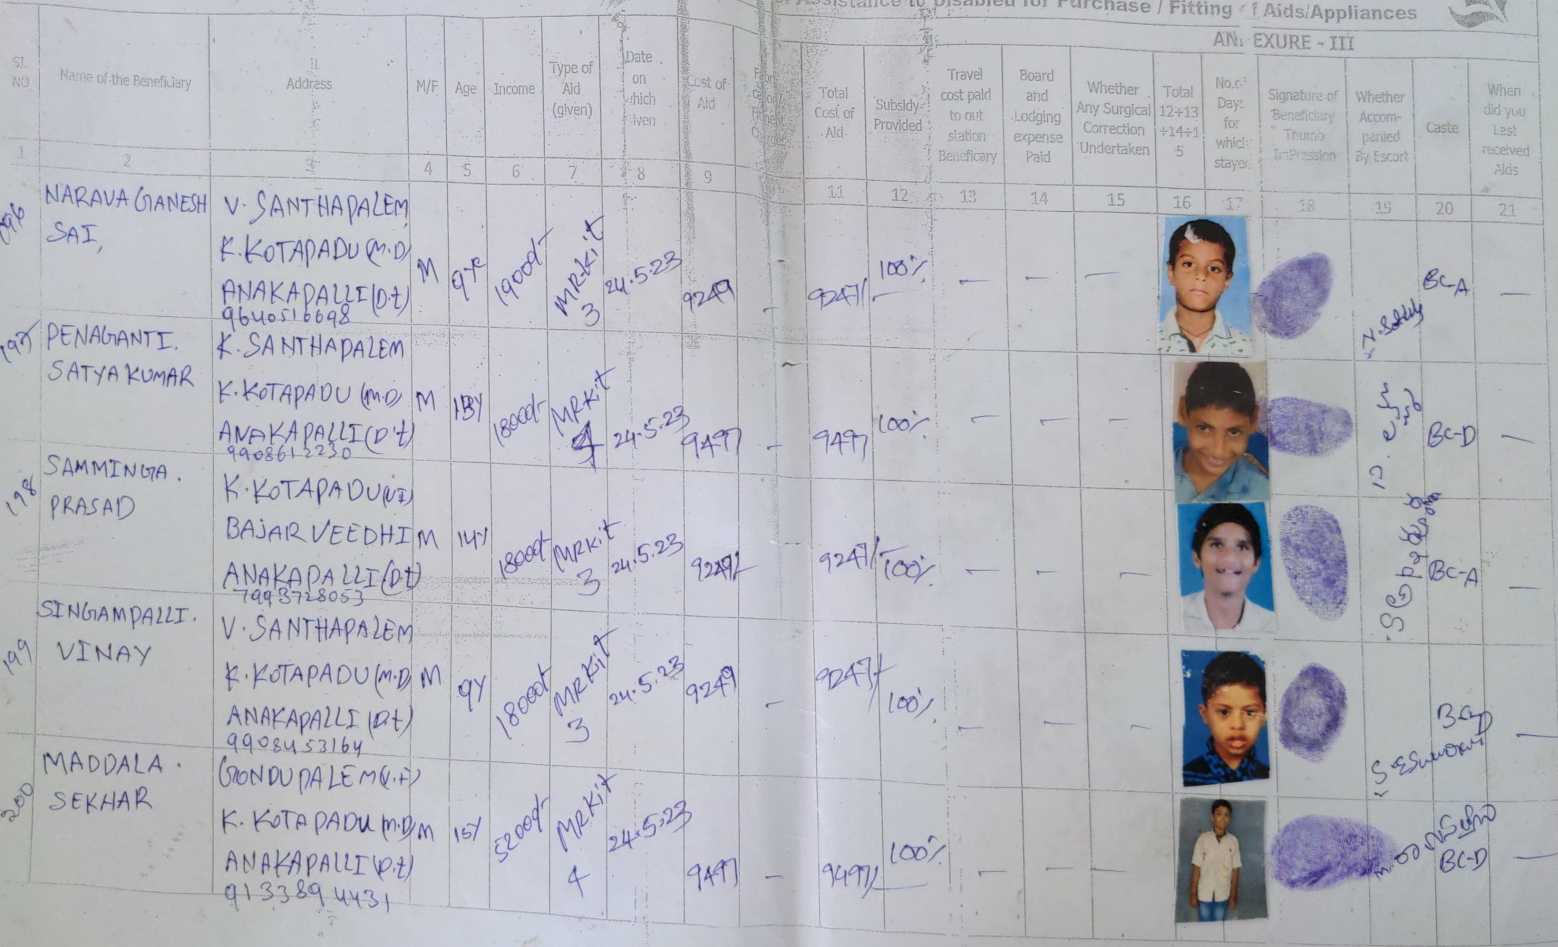 Assistance to Disabled for Purchase / Fitting of Aids/Appliances
ANNEXURE - III
SL. NO
Name of the Beneficiary
Address
M/F
Age
Income
Type of Aid (given)
Date on which given
Cost of Aid
Total Cost of Aid
Subsidy Provided
Travel cost paid to out station Beneficary
Board and Lodging expense Paid
Whether Any Surgical Correction Undertaken
Total 12+13 +14+1 5
No.of Days for which stayed
Signature of Beneficiary Thumb Impression
Whether Accom- panied By Escort
Caste
When did you Last received Aids
1 2 3 4 5 6 7 8 9 11 12 13 14 15 16 17 18 19 20 21
196
NARAVA GANESH
SAI,
V. SANTHAPALEM
K.KOTAPADU (M.D)
ANAKAPALLI (D.t)
9640516698
M
9ye
19000/-
MR.Kit
3
24.5.23
9247
-
9247/
100%
- - -
BC-A
-
197
PENAGANTI.
SATYA KUMAR
K. SANTHAPALEM
K.KOTAPADU (M.D)
ANAKAPALLI (D.t)
9908612230
M
18000/-
MRKit
4
24.5.23
9497
-
9497
100%
- - -
BC-D
-
198
SAMMINGA.
PRASAD
K.KOTAPADU (VI)
BAJAR VEEDHI
ANAKAPALLI (D.t)
7993728053
M
14Y
18000/-
MRKit
3
24.5.23
9247/
9247/
100%
- - -
BC-A
-
199
SINGAMPALLI.
VINAY
V. SANTHAPALEM
K.KOTAPADU (M.D)
ANAKAPALLI (D.t)
9908453164
M
9Y
18000/-
MRKit
3
24.5.23
9247
-
9247/
100%
- - -
S.ESWARARI
-
200
MADDALA.
SEKHAR
GONDUPALEM (V.I)
K. KOTAPADU (M.D)
ANAKAPALLI (D.t)
9133894431
M
15Y
52000/-
MRKit
4
24.5.23
9497
-
9497/
100%
- - -
BC-D
-